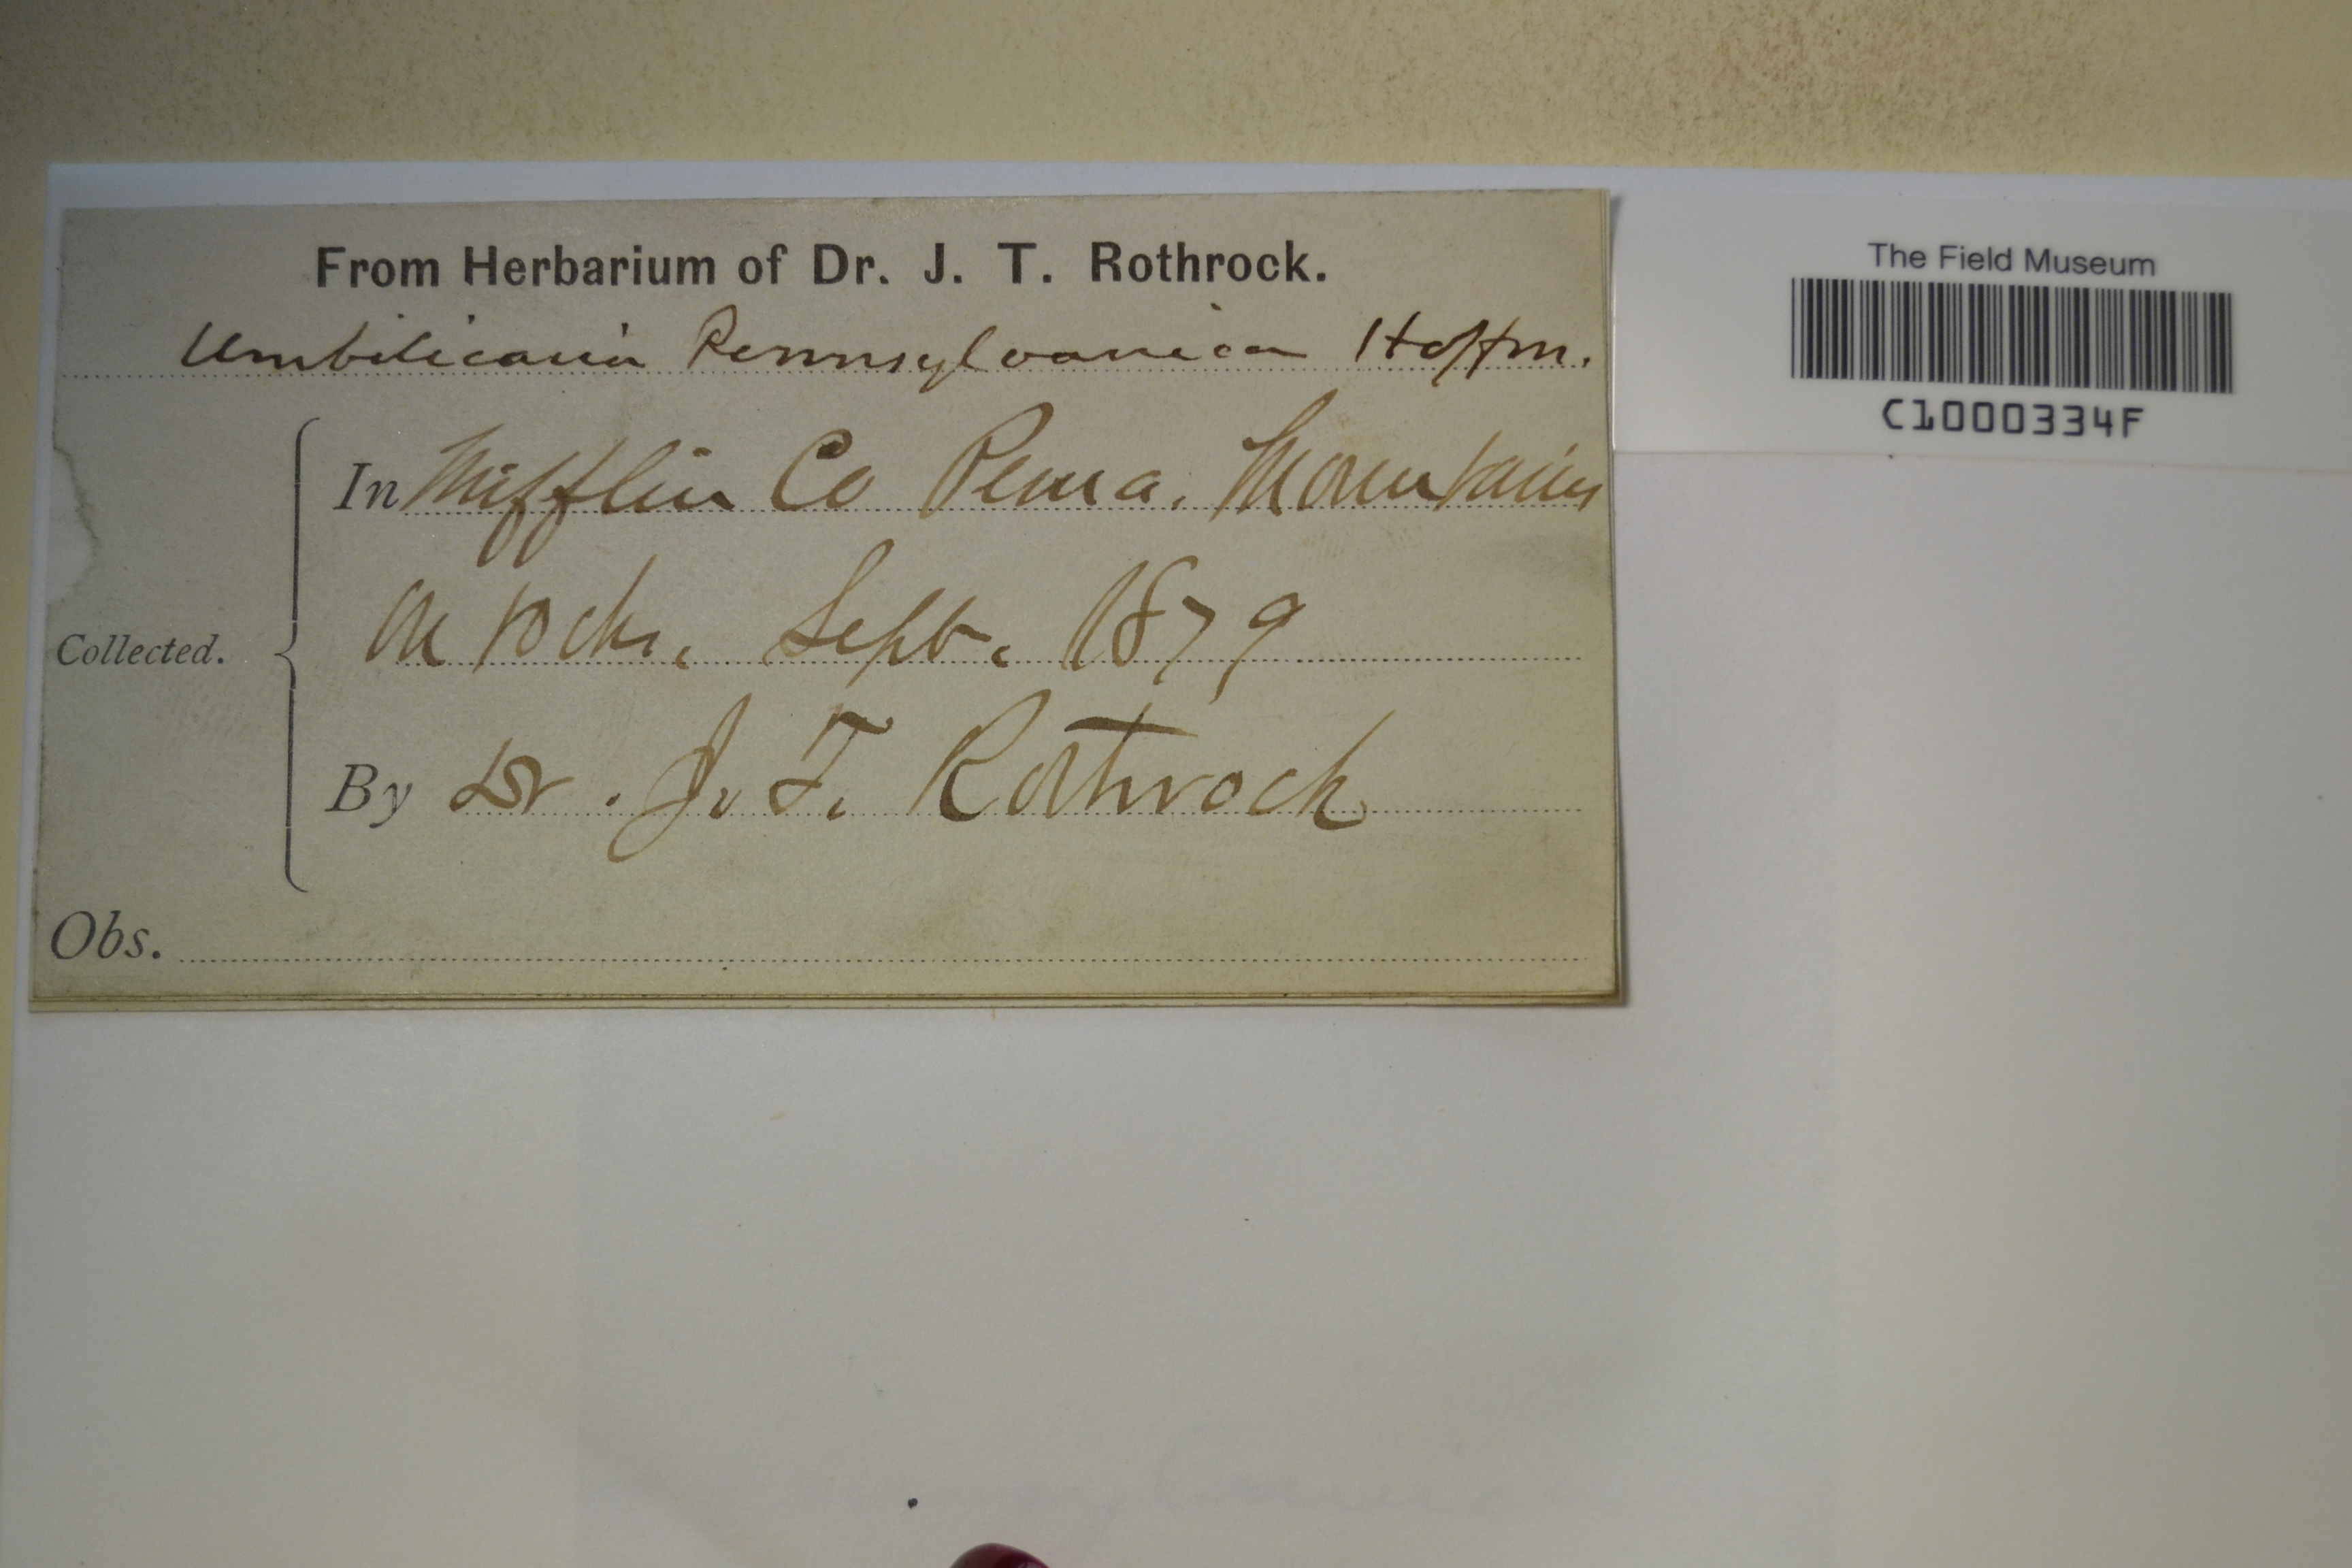 From Herbarium of Dr. J. T. Rothrock.
Umbilicaria Pennsylvanica Hoffm.
In Mifflin Co Penna. Mountains
On rocks. Sept. 1879
Collected.
By Dr. J. T. Rothrock
Obs.
The Field Museum
C1000334F